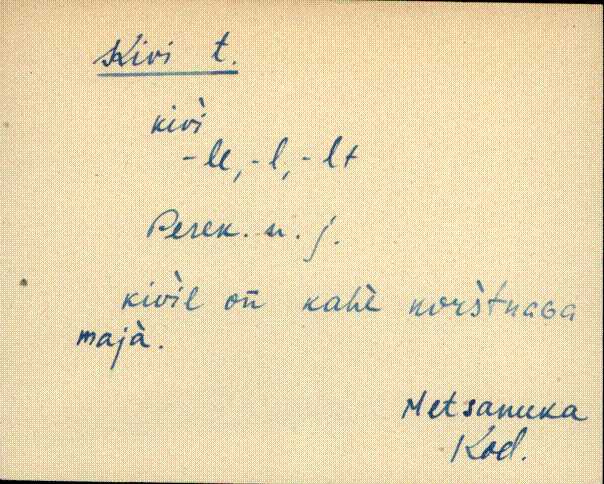 Kivi t.
kivì
-le, -l, -lt
Perek. n. j.
kivìl on̄ kahè korstnaga
majà.
Metsanuka
Kod.